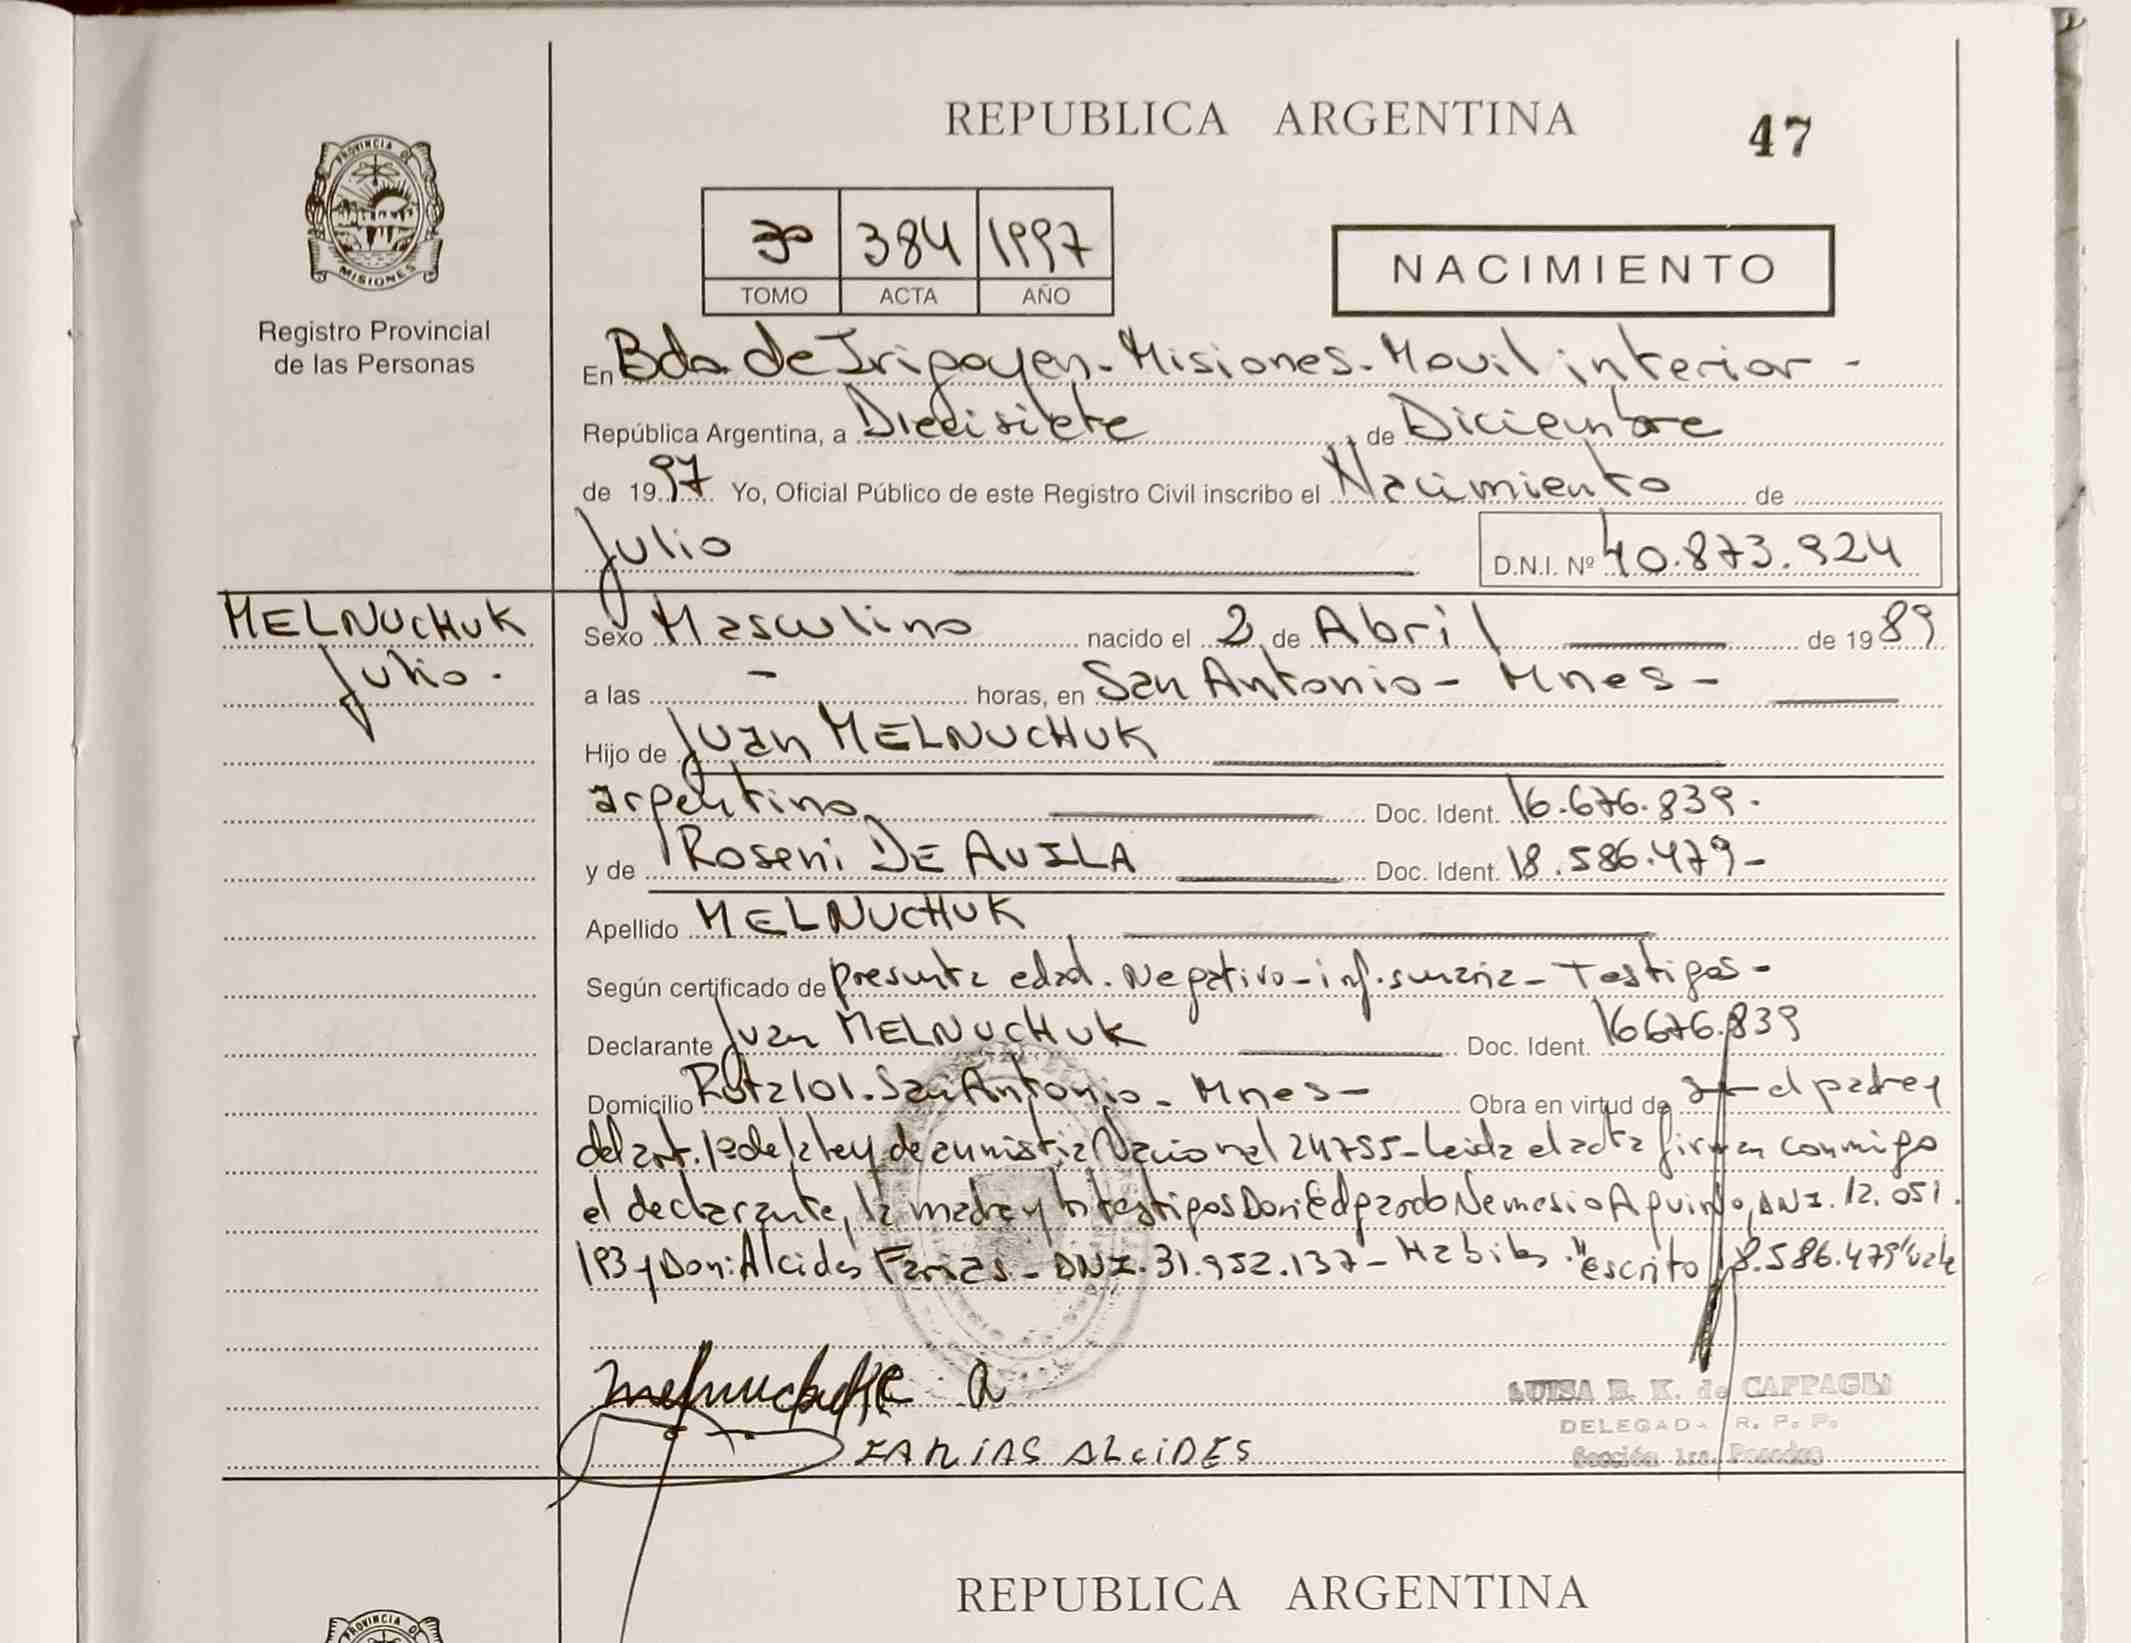 REPUBLICA ARGENTINA
47
PROVINCIA DE
MISIONES
Registro Provincial
de las Personas
384 1997
TOMO ACTA AÑO
NACIMIENTO
En Bdo. de Irigoyen - Misiones - Movil interior -
República Argentina, a Diecisiete, de Diciembre
de 1997 Yo, Oficial Público de este Registro Civil inscribo el Nacimiento de
Julio
D.N.I. Nº 40.873.924
MELNUCHUK
Julio.
Sexo Masculino nacido el 2 de Abril de 1989
a las - horas, en San Antonio - Mnes -
Hijo de Juan MELNUCHUK
argentino Doc. Ident. 16.676.839.
y de Roseni DE AVILA Doc. Ident. 18.586.479-
Apellido MELNUCHUK
Según certificado de presunta edad. Negativo - inf. sumaria - Testigos -
Declarante Juan MELNUCHUK Doc. Ident. 16676.839
Domicilio Ruta 101. San Antonio - Mnes - Obra en virtud de el padre y
del art. 1º de la ley de amnistia Nacional 24755 - Leida el acta firman conmigo
el declarante, la madre y testigos Don: Edgardo Nemesio Aquino, DNI. 12.051.
193 y Don: Alcides Farias - DNI. 31.952.137 - Habiles. "escrito 18.586.479" vale
FARIAS ALCIDES
LUISA E. K. de CAPPAGLI
DELEGADA R. P. P.
Sección 1ra. Posadas
REPUBLICA ARGENTINA
PROVINCIA DE